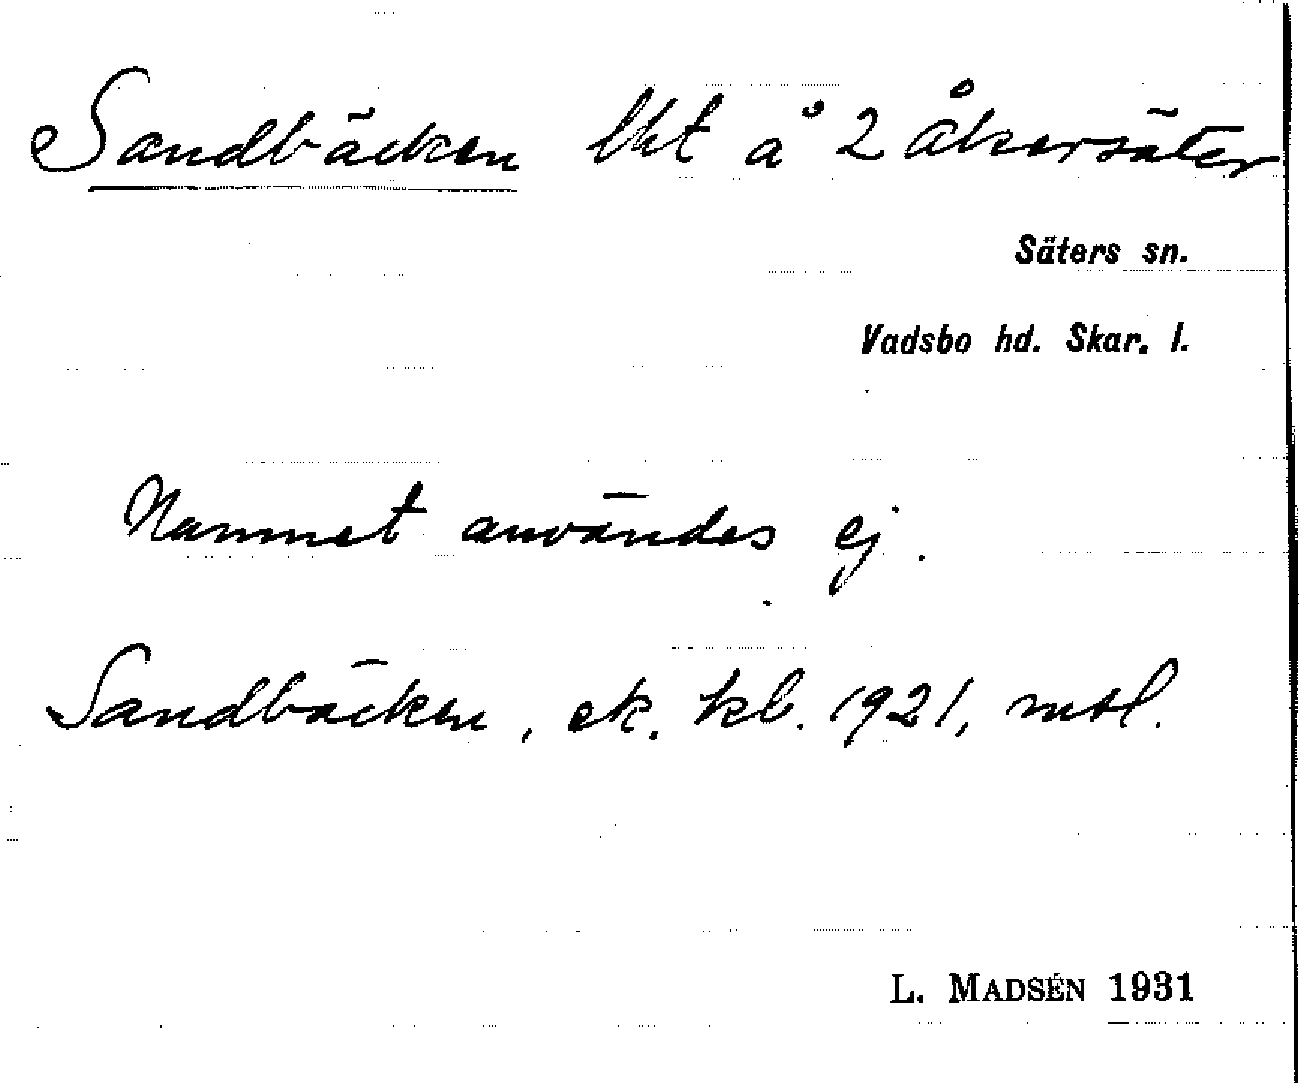 Sandbäcken lht å 2 Åkersäter
Säters sn.
Vadsbo hd. Skar. l.
Namnet användes ej.
Sandbäcken, ek. kb. 1921, mtl.
L. MADSÉN 1931